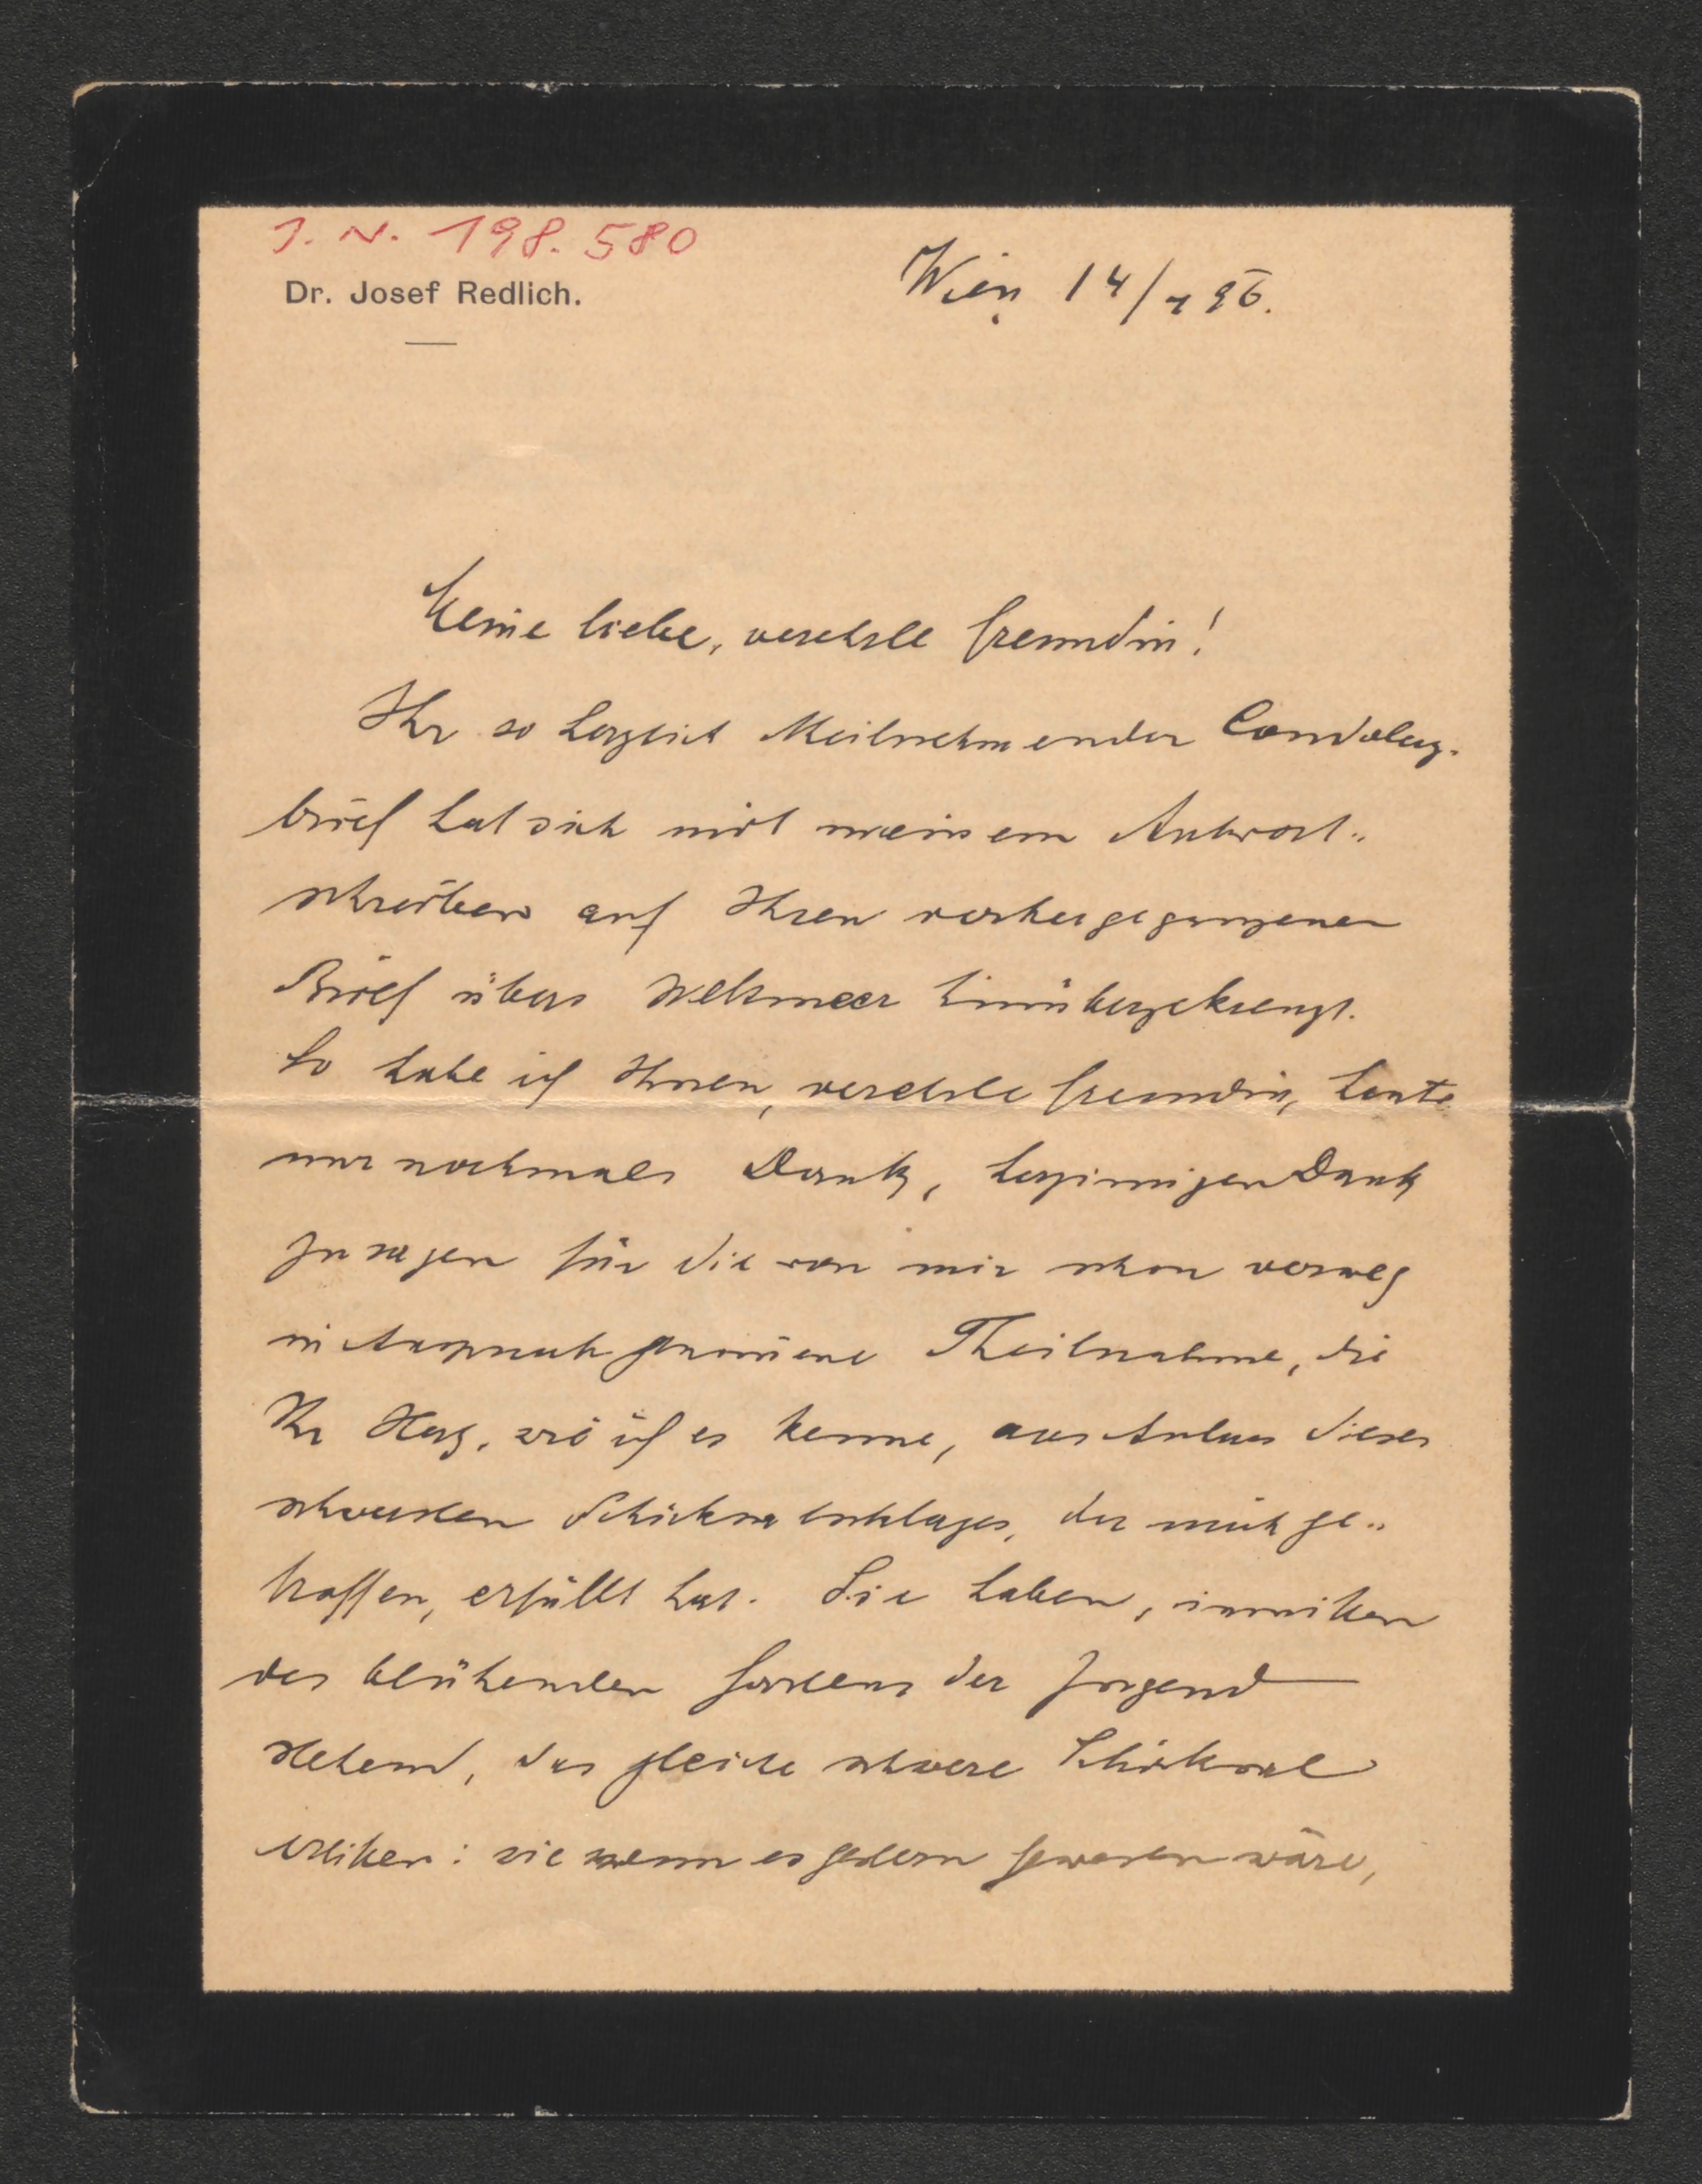 J. N. 198.580
Dr. Josef Redlich.
Wien 14/7 96.
Meine liebe, verehrte Freundin!
Ihr so herzlich theilnehmender Condolenz-
brief hat sich mit meinem Antwort-
schreiben auf Ihren vorhergegangenen
Brief übers Weltmeer hinübergekreuzt.
So habe ich Ihnen, verehrte Freundin, heute
nur nochmals Dank, herzinnigen Dank
zu sagen für die von mir schon vorweg
in Anspruch genom̄ene Theilnahme, die
Ihr Herz, wie ich es kenne, aus Anlass dieses
schwersten Schicksalschlages, der mich ge-
troffen, erfüllt hat. Sie haben, inmitten
des blühenden Gartens der Jugend
stehend, das gleiche schwere Schicksal
erlitten: wie wenn es gestern gewesen wäre,